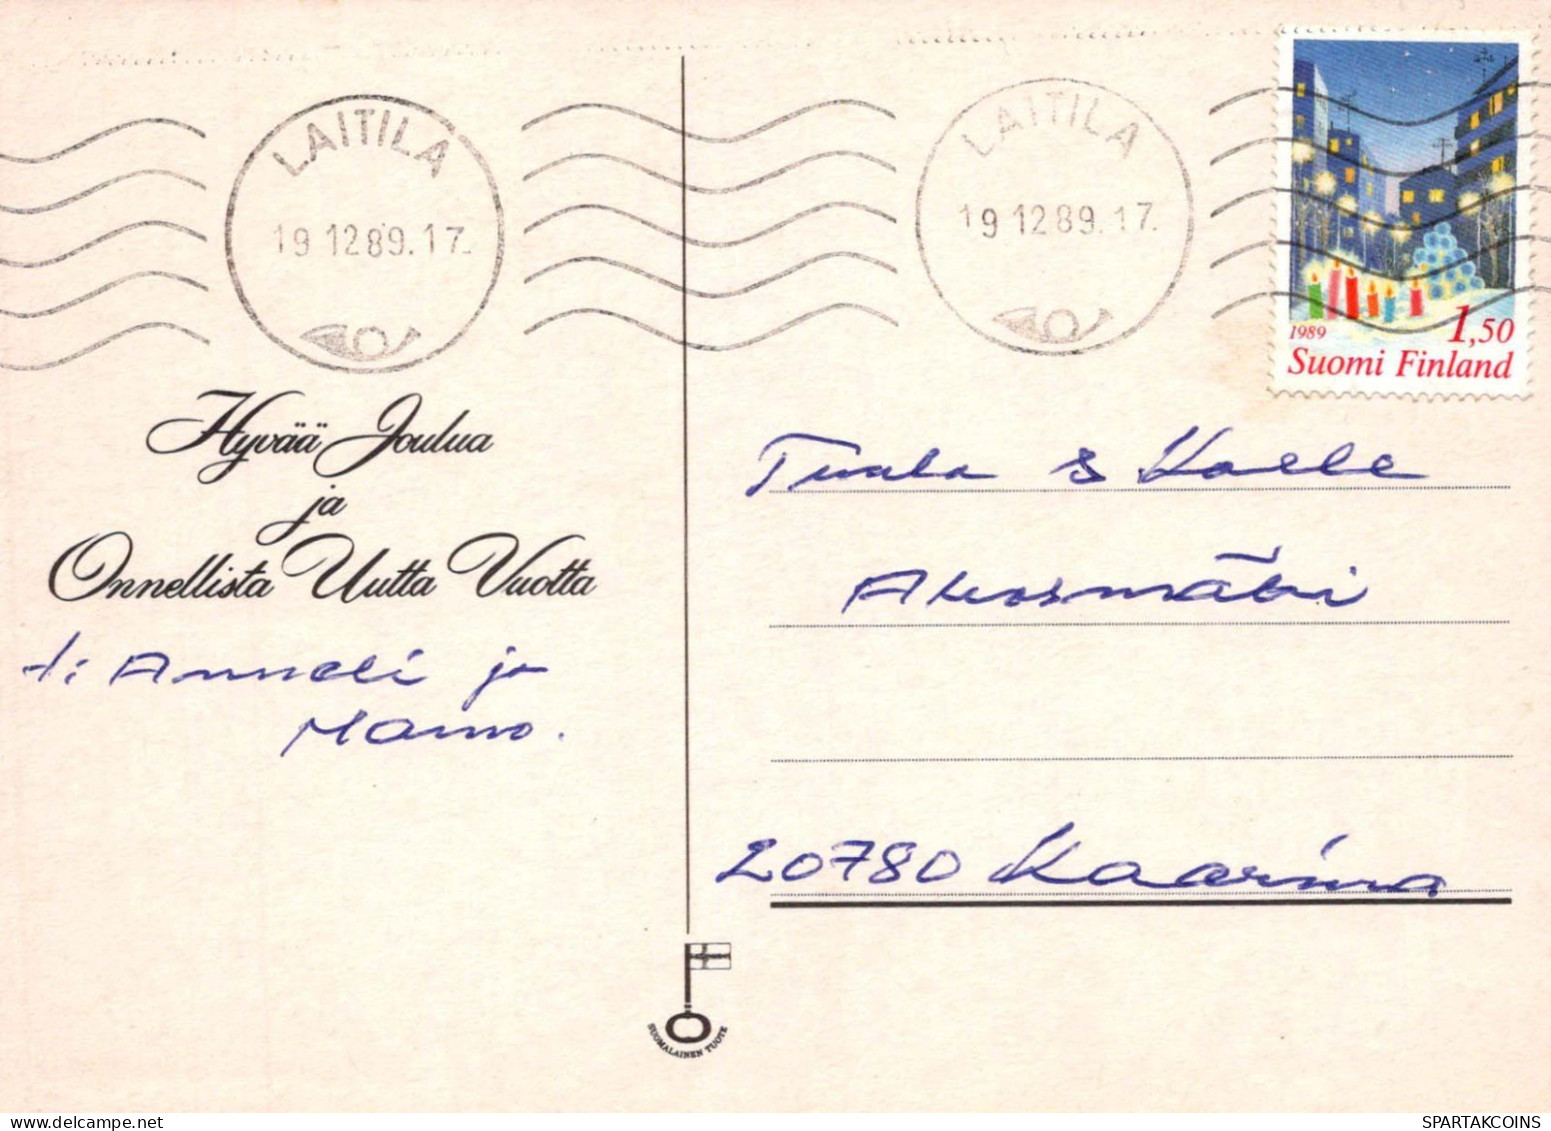 LAITILA
19 12 89. 17.
LAITILA
19 12 89. 17.
1989 1,50
Suomi Finland
Hyvää Joulua
ja
Onnellista Uutta Vuotta
t: Anneli ja
Tuula & Kalle
Ahosmäki
20780 Kaarina
SUOMALAINEN TUOTE
SPARTAKCOINS